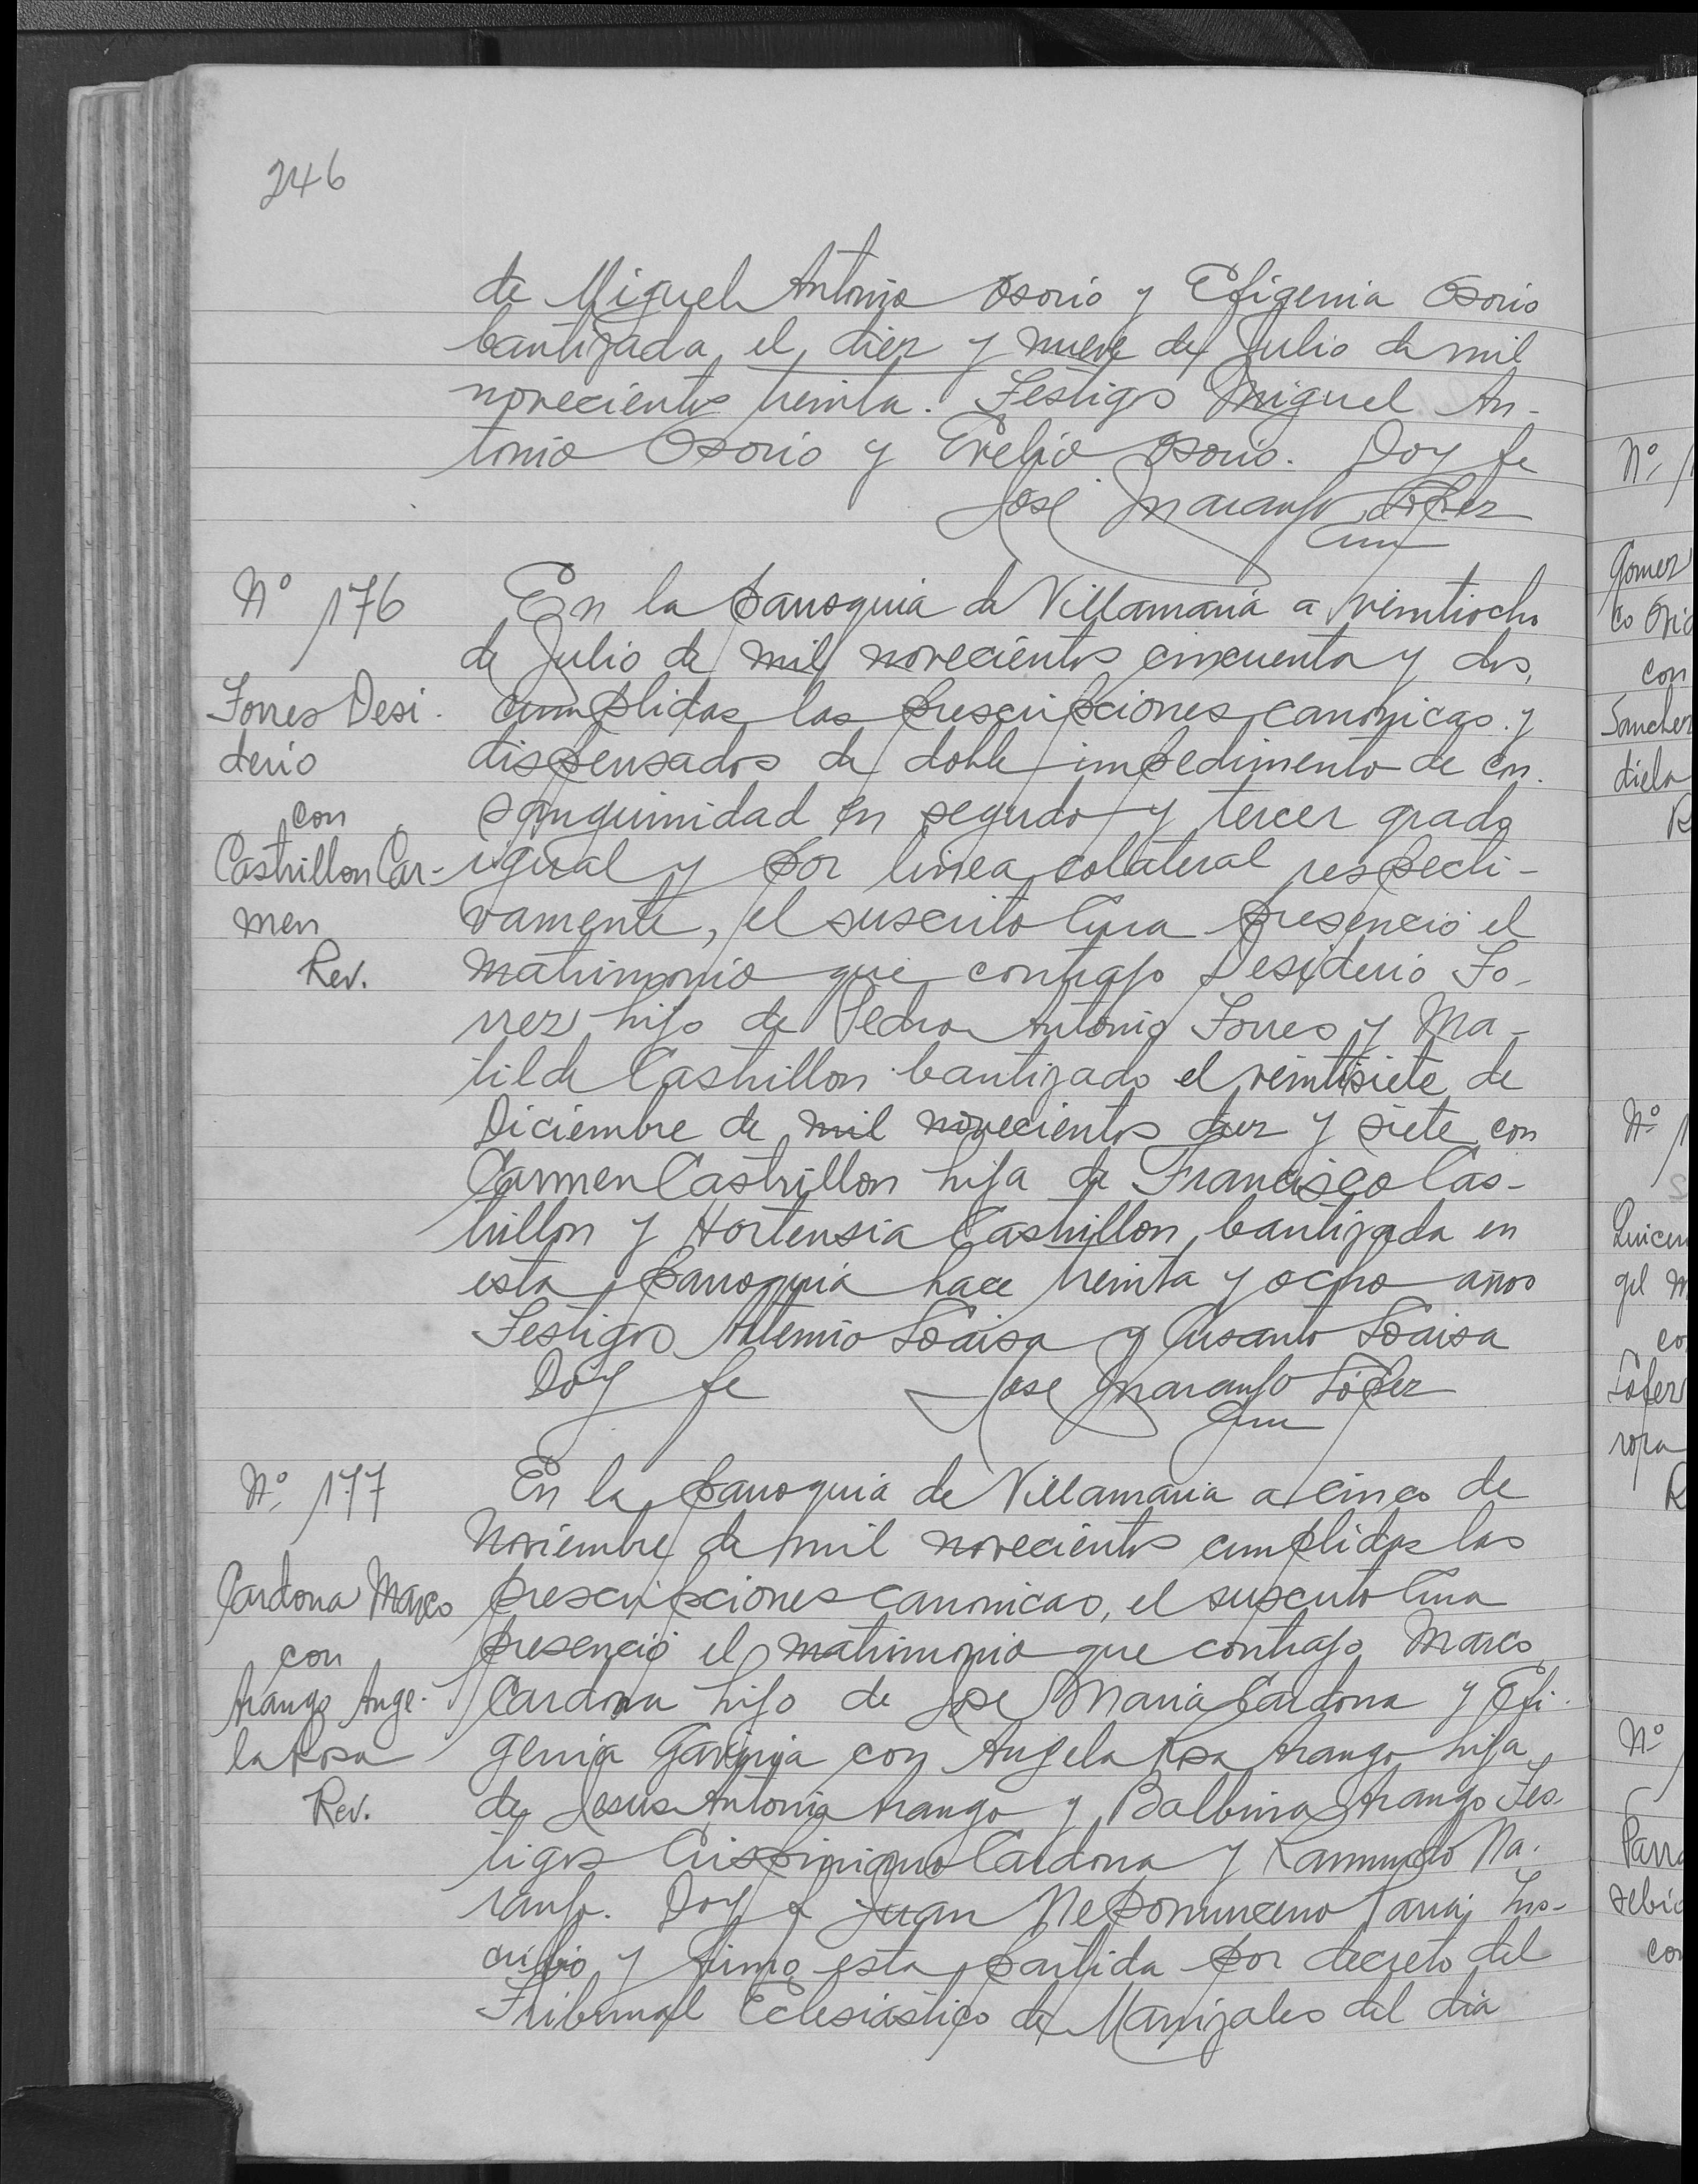 246
de Miguel Antonio Osorio y Efigenia Osorio
bautizada el diez y nueve de Julio de mil
novecientos treinta. Testigos Miguel An-
tonio Osorio y Evelio Osorio. Doy fe
José Naranjo López
Cura
Nº 176
Torres Desi-
derio
con
Castrillon Car-
men
Rev.
En la parroquia de Villamaria a veintiocho
de Julio de mil novecientos cincuenta y dos,
cumplidas las prescripciones canonicas y
dispensados de doble impedimento de con-
sanguinidad en segudo y tercer grado
igual y por linea colateral respecti-
vamente, el suscrito Cura presenció el
matrimonio que contrajo Desiderio To-
rres hijo de Pedro Antonio Torres y Ma-
tilde Castrillon bautizado el veintisiete de
Diciembre de mil novecientos diez y siete con
Carmen Castrillon hija de Francisco Cas-
trillon y Hortensia Castrillon, bautizada en
esta parroquia hace treinta y ocho años
Testigos Artemio Loaisa y Crisanto Loaisa
Doy fe José Naranjo López
Cura
Nº 177
Cardona Marco
con
Arango Ange-
la Rosa
Rev.
En la parroquia de Villamaria a cinco de
Noviembre de mil novecientos cumplidas las
prescripciones canonicas, el suscrito Cura
presenció el matrimonio que contrajo Marco
Cardona hijo de José Maria Cardona y Efi-
genia con Angela Rosa Arango hija
de Jesus Antonio Arango y Balbina Arango Tes-
tigos Crispiniano Cardona y Raimundo Na-
ranjo. Doy fe Juan Nepomuceno Parra; Ins-
cribo y firmo esta partida por decreto del
Tribunal Eclesiástico de Manizales del dia
Nº
Gomez
con
Sanchez
Nº
Lopez
Nº
Parra